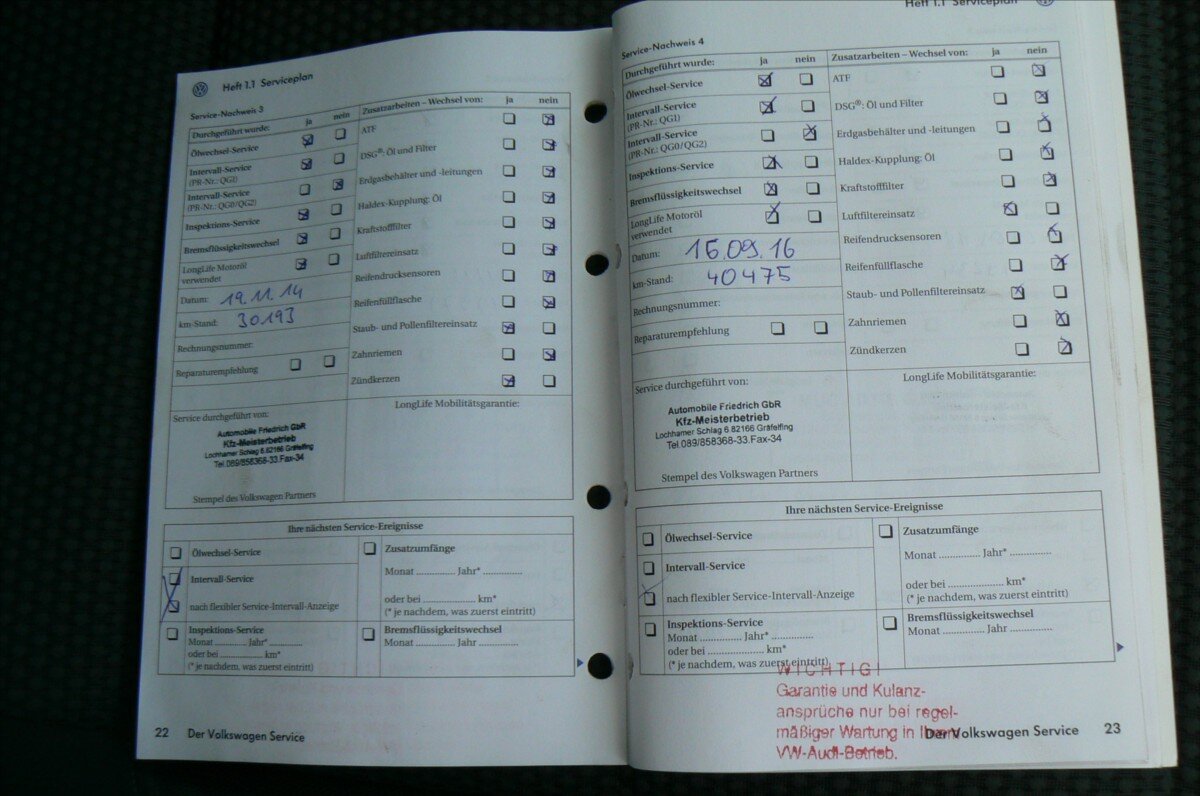 Heft 1.1 Serviceplan
Service-Nachweis 3
Durchgeführt wurde: ja nein
Zusatzarbeiten – Wechsel von: ja nein
Ölwechsel-Service
ATF
Intervall-Service
(PR-Nr.: QG1)
DSG®: Öl und Filter
Intervall-Service
(PR-Nr.: QG0/QG2)
Erdgasbehälter und -leitungen
Inspektions-Service
Haldex-Kupplung: Öl
Bremsflüssigkeitswechsel
Kraftstofffilter
LongLife Motoröl
verwendet
Luftfiltereinsatz
Datum: 19.11.14
Reifendrucksensoren
km-Stand: 30193
Reifenfüllflasche
Rechnungsnummer:
Staub- und Pollenfiltereinsatz
Reparaturempfehlung
Zahnriemen
Zündkerzen
Service durchgeführt von:
LongLife Mobilitätsgarantie:
Automobile Friedrich GbR
Kfz-Meisterbetrieb
Lochhamer Schlag 6.82166 Gräfelfing
Tel.089/858368-33.Fax-34
Stempel des Volkswagen Partners
Ihre nächsten Service-Ereignisse
Ölwechsel-Service
Zusatzumfänge
Intervall-Service
Monat ............... Jahr* ...............
nach flexibler Service-Intervall-Anzeige
oder bei ..................... km*
(* je nachdem, was zuerst eintritt)
Inspektions-Service
Monat ............... Jahr* ...............
oder bei ..................... km*
(* je nachdem, was zuerst eintritt)
Bremsflüssigkeitswechsel
Monat ............... Jahr ...............
22 Der Volkswagen Service
Heft 1.1 Serviceplan
Service-Nachweis 4
Durchgeführt wurde: ja nein
Zusatzarbeiten – Wechsel von: ja nein
Ölwechsel-Service
ATF
Intervall-Service
(PR-Nr.: QG1)
DSG®: Öl und Filter
Intervall-Service
(PR-Nr.: QG0/QG2)
Erdgasbehälter und -leitungen
Inspektions-Service
Haldex-Kupplung: Öl
Bremsflüssigkeitswechsel
Kraftstofffilter
LongLife Motoröl
verwendet
Luftfiltereinsatz
Datum: 15.09.16
Reifendrucksensoren
km-Stand: 40475
Reifenfüllflasche
Rechnungsnummer:
Staub- und Pollenfiltereinsatz
Reparaturempfehlung
Zahnriemen
Zündkerzen
Service durchgeführt von:
LongLife Mobilitätsgarantie:
Automobile Friedrich GbR
Kfz-Meisterbetrieb
Lochhamer Schlag 6.82166 Gräfelfing
Tel.089/858368-33.Fax-34
Stempel des Volkswagen Partners
Ihre nächsten Service-Ereignisse
Ölwechsel-Service
Zusatzumfänge
Intervall-Service
Monat ............... Jahr* ...............
nach flexibler Service-Intervall-Anzeige
oder bei ..................... km*
(* je nachdem, was zuerst eintritt)
Inspektions-Service
Monat ............... Jahr* ...............
oder bei ..................... km*
(* je nachdem, was zuerst eintritt)
Bremsflüssigkeitswechsel
Monat ............... Jahr ...............
WICHTIG!
Garantie und Kulanz-
ansprüche nur bei regel-
mäßiger Wartung in Ihrem
VW-Audi-Betrieb.
Der Volkswagen Service 23